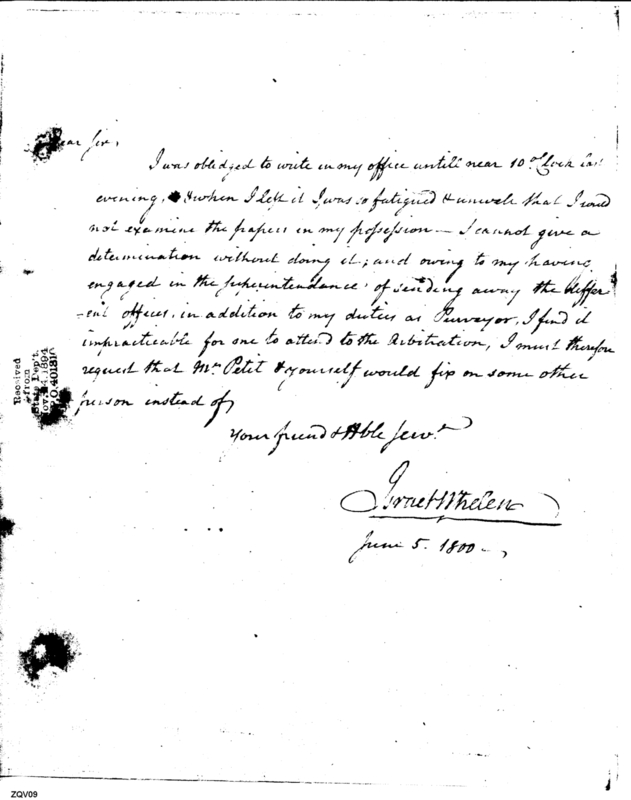 Dear Sir,
I was obledged to write in my office untill near 10 oClock last
evening, & when I left it I was so fatigued & unwell that I could
not examine the papers in my possession — I cannot give a
determination without doing it; and owing to my having
engaged in the superintendance of sending away the differ
-ent offices, in addition to my duties as Purveyor, I find it
impracticable for me to attend to the Arbitration, I must therefore
request that Mr Petit & yourself would fix on some other
person instead of
Your friend & Hble Servt
Israel Whelen
June 5. 1800
Received
from
State Dep't.
Nov. 14. 1894
ZQV09